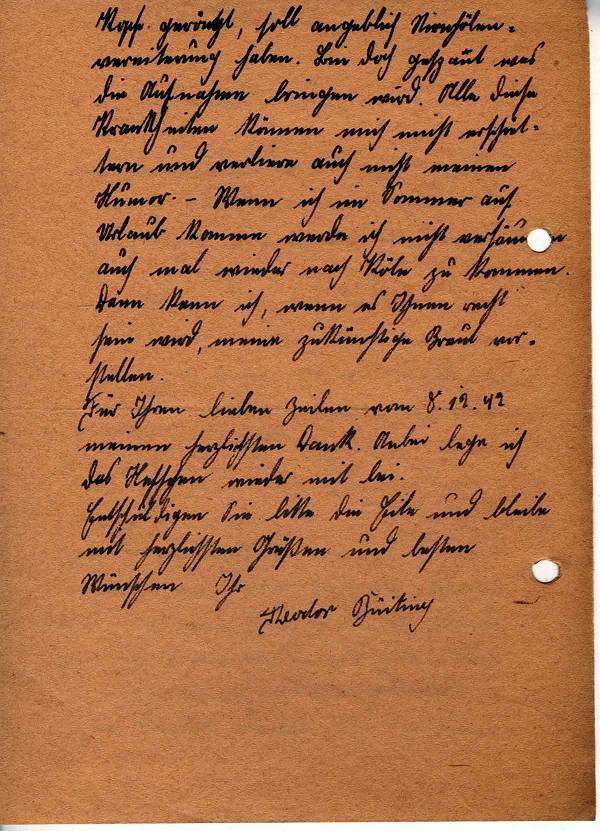 Kopf geröntgt, soll angeblich Stirnhölen-
vereiterung haben. Bin doch gespannt was
die Aufnahmen bringen wird. Alle diese
Krankheiten können mich nicht erschüt-
tern und verliere auch nicht meinen
Humor. – Wenn ich im Sommer auf
Urlaub komme werde ich nicht versäumen
auch mal wieder nach Köln zu kommen.
Dann kann ich, wenn es Ihnen recht
sein wird, meine zukünftige Braut vor-
stellen.
Für Ihren lieben Zeilen vom 8.12.42
meinen herzlichsten Dank. Anbei lege ich
das Heftchen wieder mit bei.
Entschuldigen Sie bitte die Eile und bleibe
mit herzlichsten Grüßen und besten
Wünschen Ihr
Theodor